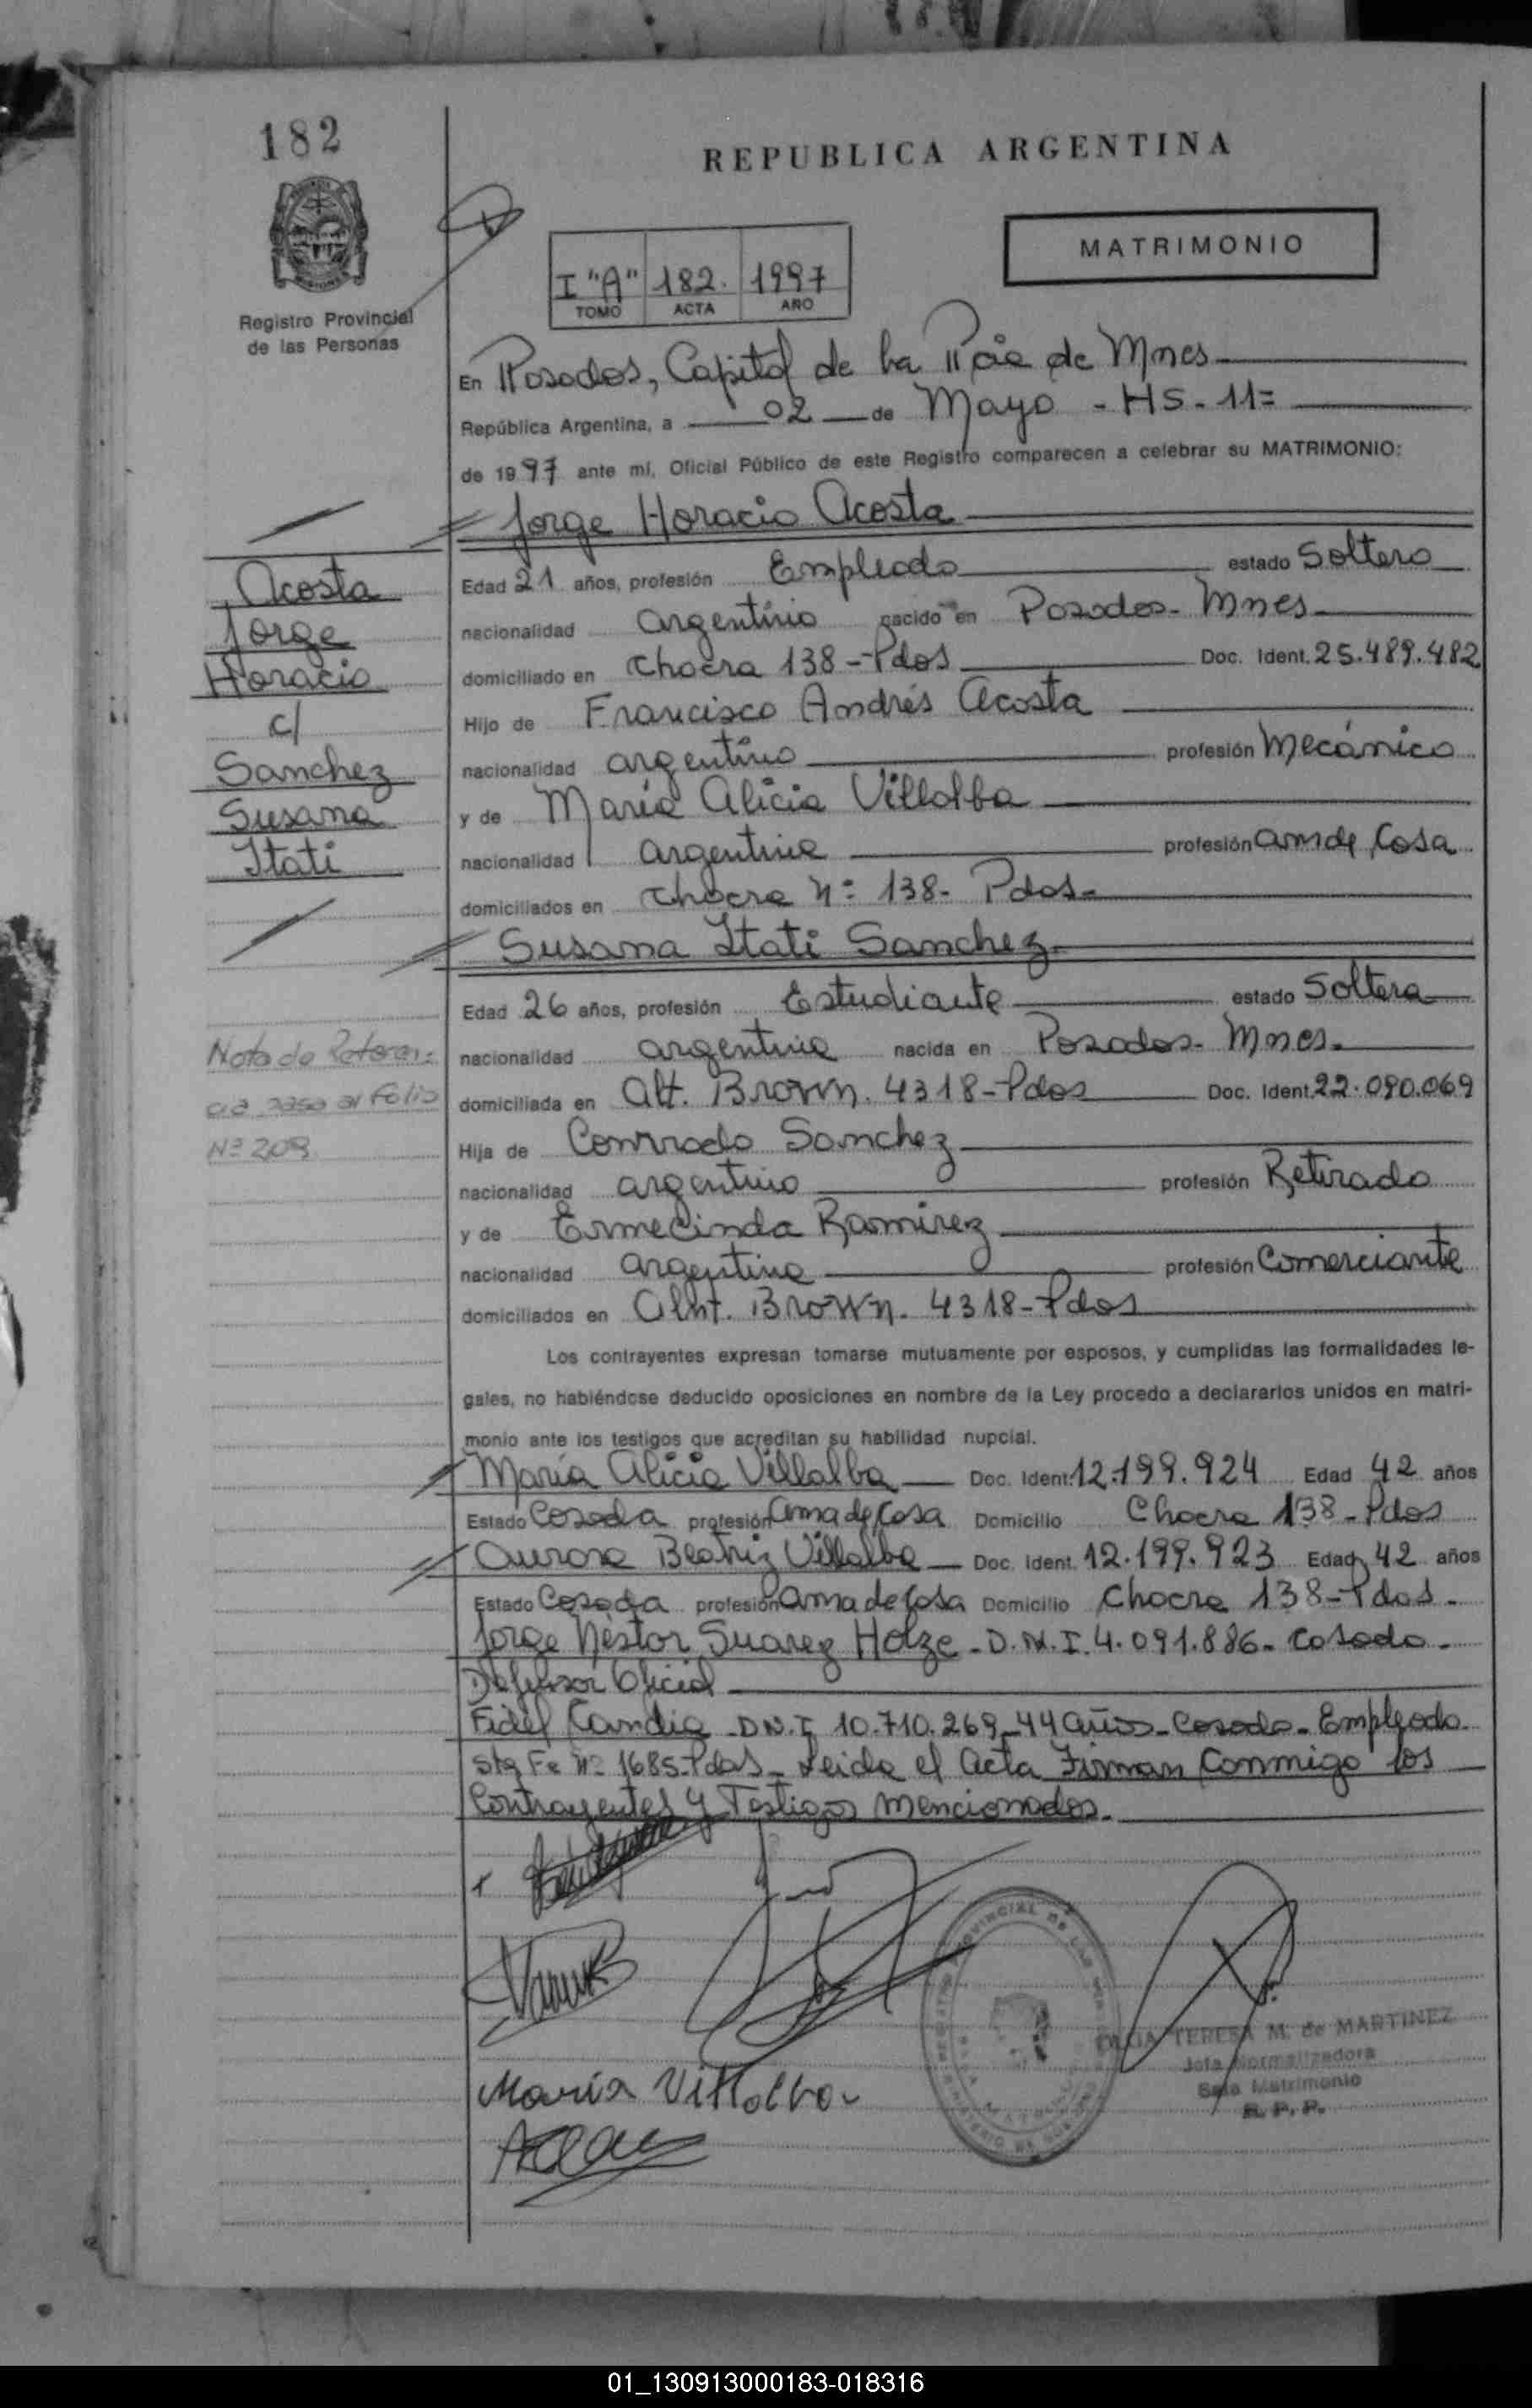 182
REPUBLICA ARGENTINA
MATRIMONIO
I "A" 182. 1997
TOMO ACTA AÑO
Registro Provincial
de las Personas
En Posadas, Capital de la Pcia de Mnes
República Argentina, a 02 de Mayo - HS - 11=
de 1997 ante mí, Oficial Público de este Registro comparecen a celebrar su MATRIMONIO:
Jorge Horacio Acosta
Acosta
Jorge
Horacio
c/
Sanchez
Susana
Itati
Edad 21 años, profesión Empleado estado Soltero
nacionalidad argentino nacido en Posadas - Mnes
domiciliado en Chacra 138 - Pdas Doc. Ident. 25.489.482
Hijo de Francisco Andrés Acosta
nacionalidad argentino profesión Mecánico
y de María Alicia Villalba
nacionalidad argentina profesión ama de Casa
domiciliados en Chacra Nº 138 - Pdas -
Susana Itati Sanchez
Edad 26 años, profesión Estudiante estado Soltera
nacionalidad argentina nacida en Posadas - Mnes.
domiciliada en Alt. Brown. 4318 - Pdas Doc. Ident. 22.090.069
Hija de Conrrado Sanchez
nacionalidad argentino profesión Retirado
y de Ermecinda Ramirez
nacionalidad argentina profesión Comerciante
domiciliados en Almt. Brown. 4318 - Pdas
Nota de Referen-
cia pasa al Folio
Nº 209
Los contrayentes expresan tomarse mutuamente por esposos, y cumplidas las formalidades le-
gales, no habiéndose deducido oposiciones en nombre de la Ley procedo a declararlos unidos en matri-
monio ante los testigos que acreditan su habilidad nupcial.
María Alicia Villalba Doc. Ident. 12.199.924 Edad 42 años
Estado Casada profesión ama de Casa Domicilio Chacra 138 - Pdas
Aurora Beatriz Villalba Doc. Ident. 12.199.923 Edad 42 años
Estado Casada profesión ama de Casa Domicilio Chacra 138 - Pdas -
Jorge Néstor Suarez Holze - D.N.I. 4.091.886 - Casado -
Defensor Oficial
Fidel Candia - D.N.I 10.710.269 - 44 años - Casado - Empleado
Sta Fe Nº 1685 - Pdas - Leida el Acta Firman Conmigo los
Contrayentes y Testigos mencionados.
María Villalba
TERESA M. de MARTINEZ
Jefa Normalizadora
Sala Matrimonio
R. P. P.
01_130913000183-018316